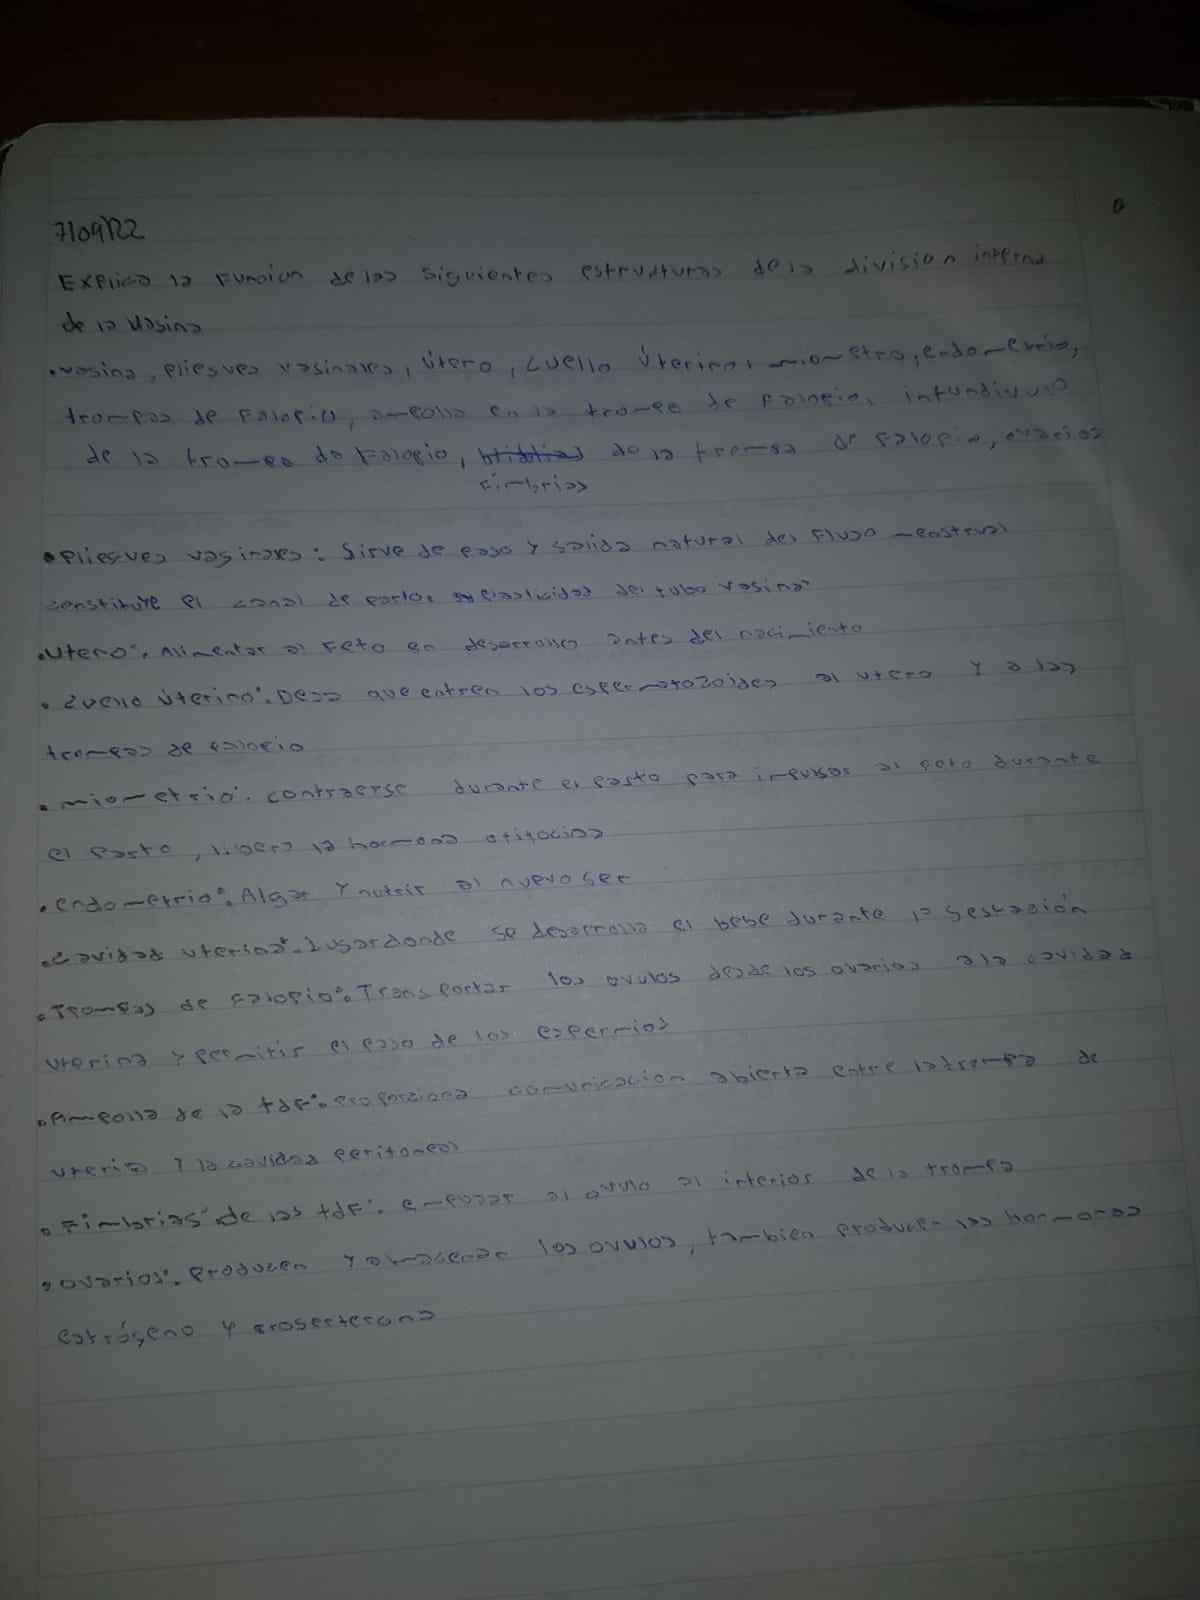 7/09/22
Explica la Funcion de las siguientes estructuras de la division interna
de la Vagina
• vagina, pliegues vaginales, Útero, Cuello Úterino, miometro, endometrio,
trompas de Falopio, ampolla en la trompa de Falopio, infundivulo
de la trompa de Falopio, de la trompa de Falopio, ovarios
Fimbrias
• Pliegues vaginales: Sirve de paso y salida natural del Fluso menstrual
constitute el canal de parto, elasticidad del tubo vaginal
• Utero: Alimentar al Feto en desarrollo antes del nacimiento
• Cuello Úterino: Deja que entren los espermatozoides al utero y a las
trompas de Falopio
• miometrio: contraerse durante el parto para impulsar al feto durante
el Parto, libera la hormona
• endometrio: y nutrir al nuevo ser
• Cavidad uterina: Lugar donde se desarrolla el bebe durante la gestación
• Trompas de Falopio: Transportar los ovulos desde los ovarios a la cavidad
uterina y permitir el paso de los espermios
• Ampolla de la tdF: proporciona comunicacion abierta entre la trompa de
uterina y la cavidad peritoneal
• Fimbrias de las tdF: empujar al ovulo al interior de la trompa
• ovarios: producen y almacenan los ovulos, tambien producen las hormonas
estrógeno y